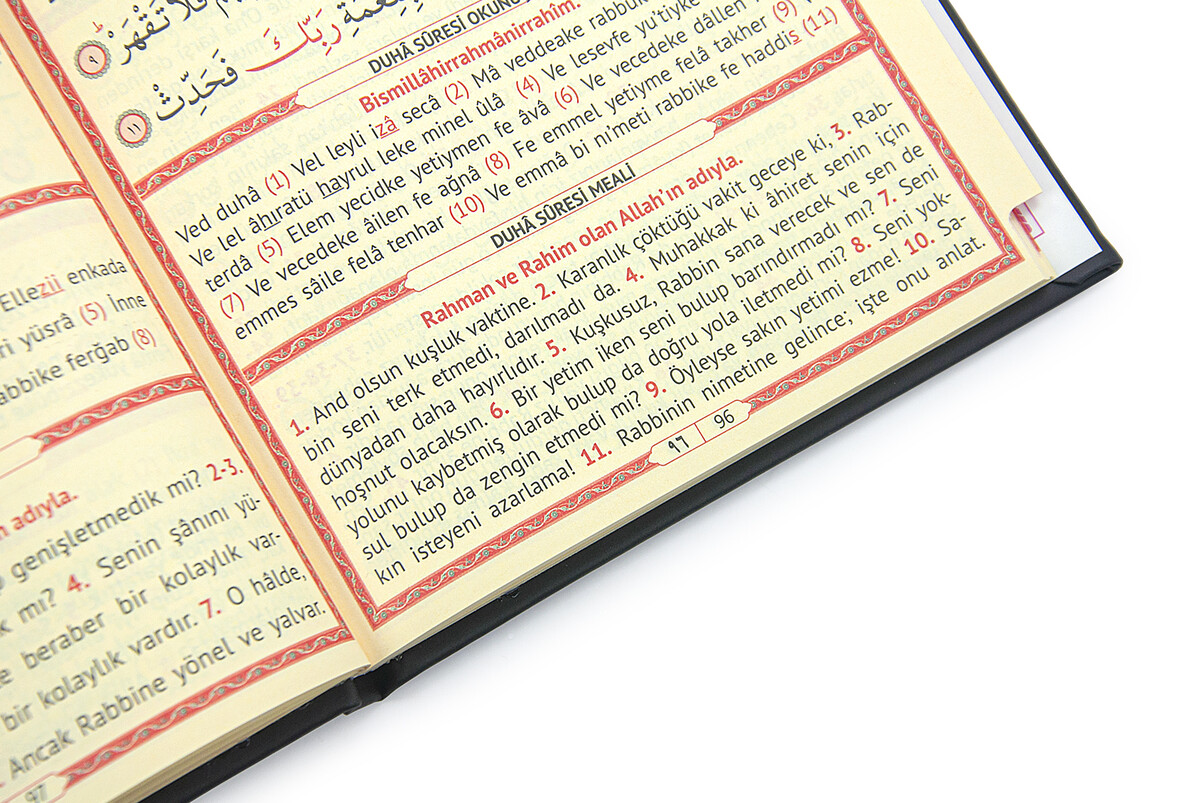 فَلَا تَقْهَرْ ٩
رَبِّكَ فَحَدِّثْ ١١
DUHÂ SÛRESİ
Bismillâhirrahmânirrahîm.
Ved duhâ (1) Vel leyli izâ secâ (2) Mâ veddeake
Ve lel âhıratü hayrul leke minel ûlâ (4) Ve lesevfe yu'tiyke
terdâ (5) Elem yecidke yetiymen fe âvâ (6) Ve vecedeke dâllen
(7) Ve vecedeke âilen fe ağnâ (8) Fe emmel yetiyme felâ takher (9)
emmes sâile felâ tenhar (10) Ve emmâ bi ni'meti rabbike fe haddis (11)
DUHÂ SÛRESİ MEALİ
Rahman ve Rahim olan Allah'ın adıyla.
1. And olsun kuşluk vaktine. 2. Karanlık çöktüğü vakit geceye ki, 3. Rab-
bin seni terk etmedi, darılmadı da. 4. Muhakkak ki âhiret senin için
dünyadan daha hayırlıdır. 5. Kuşkusuz, Rabbin sana verecek ve sen de
hoşnut olacaksın. 6. Bir yetim iken seni bulup barındırmadı mı? 7. Seni
yolunu kaybetmiş olarak bulup da doğru yola iletmedi mi? 8. Seni yok-
sul bulup da zengin etmedi mi? 9. Öyleyse sakın yetimi ezme! 10. Sa-
kın isteyeni azarlama! 11. Rabbinin nimetine gelince; işte onu anlat.
٩٦ | 96
Ellezii enkada
yüsrâ (5) İnne
ferğab (8)
adıyla.
genişletmedik mi? 2-3.
mı? 4. Senin şânını yü-
beraber bir kolaylık var-
bir kolaylık vardır. 7. O hâlde,
Ancak Rabbine yönel ve yalvar.
97